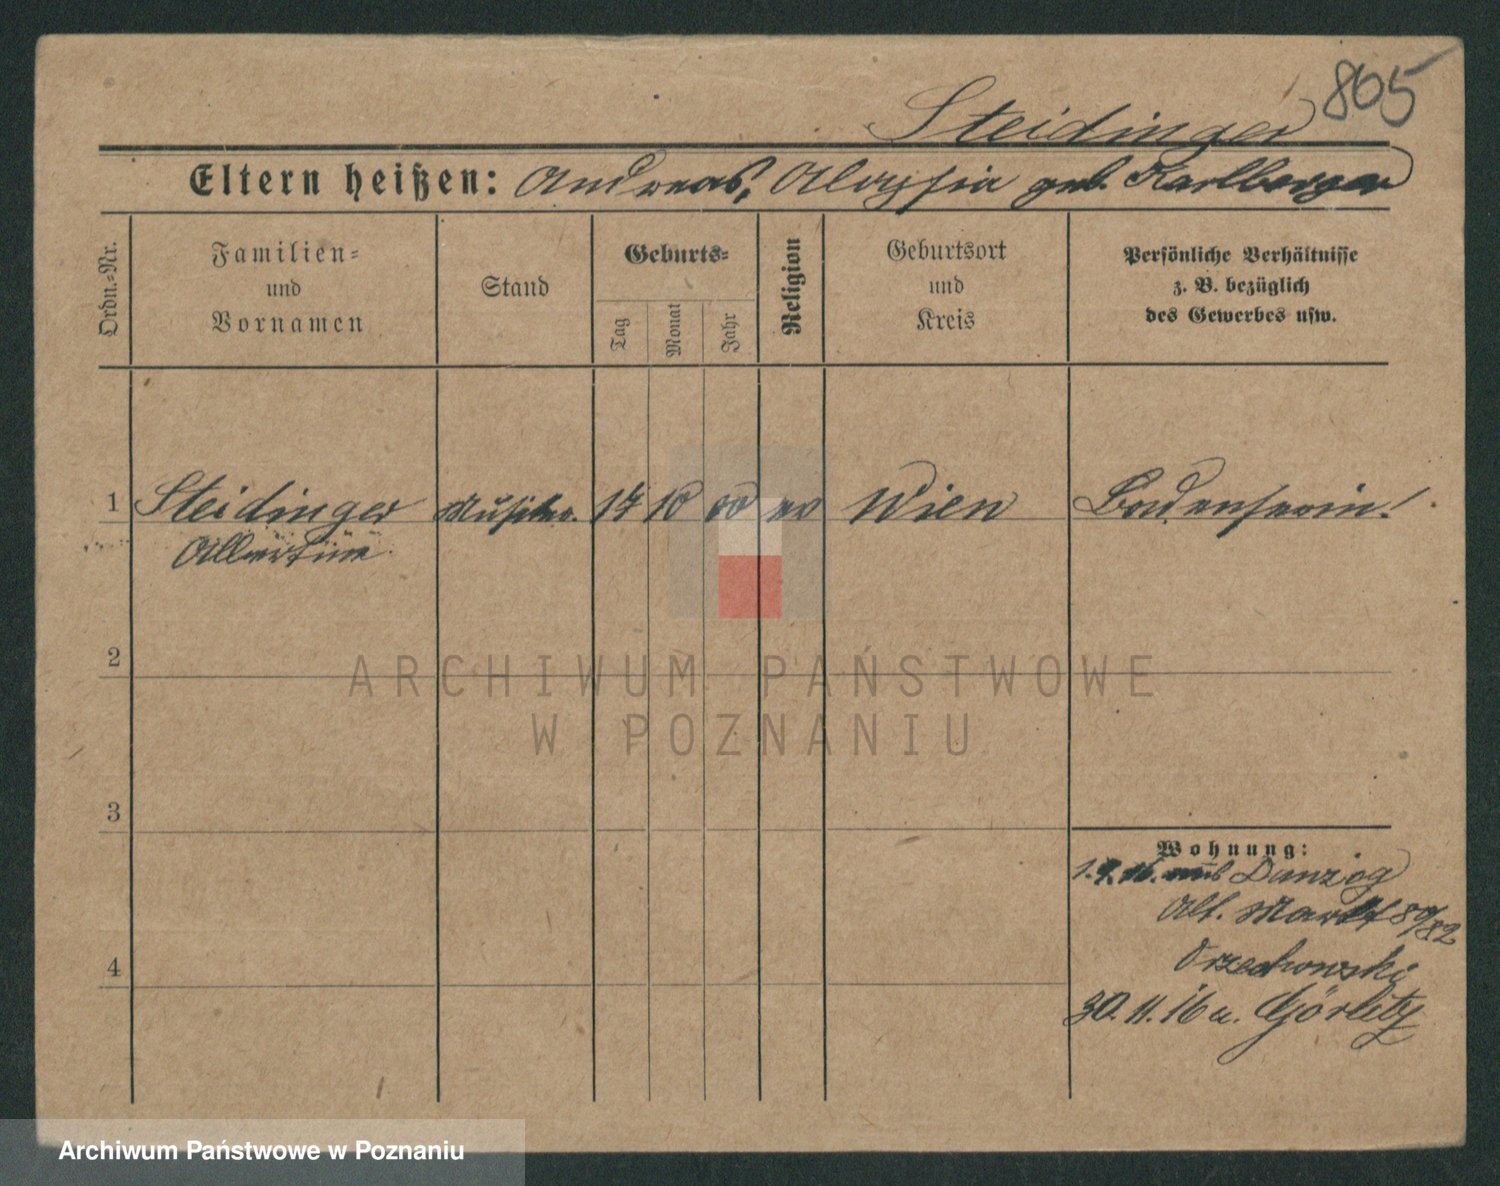 Steidinger 865
Eltern heißen: Andreas, Aloysia geb. Karlberger
Ordn.-Nr.
Familien-
und
Vornamen
Stand
Geburts-
Tag
Monat
Jahr
Religion
Geburtsort
und
Kreis
Persönliche Verhältnisse
z. B. bezüglich
des Gewerbes usw.
1 Steidinger 14 10 00 Wien
Albertine
2
ARCHIWUM PAŃSTWOWE
W POZNANIU
3
Wohnung:
1.9.16. Danzig
Alt. Markt 80/82
Orzechowski
4
30.11.16 a. Görlitz
Archiwum Państwowe w Poznaniu